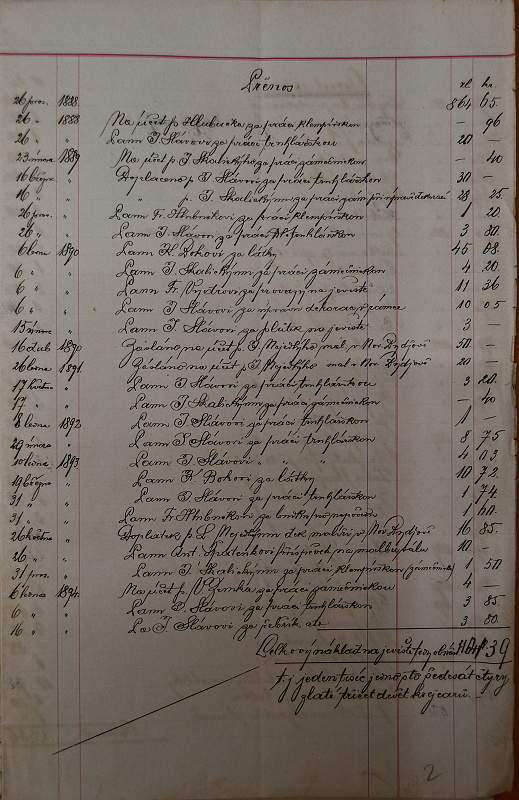 Přenos
zl. kr.
864 65.
26 pros. 1888.
26 „ 1888 Na účet p. Hlubučka za práci klempířskou — 96
26 „ „ Panu J. Slávovi za práci truhlářskou 20 —
23 února 1889 Na účet p. J. Skalického za práci zámečnickou — 40
16 března „ Doplaceno p. J. Slávovi za práci truhlářskou 30 —
16 „ „ „ „ p. J. Skalickýmu za práci zám. při 28 25.
26 pros. „ Panu Fr. za práci klempířskou 1 20.
26 „ „ Panu J. Slávovi za práci truhlářskou 3 80.
6 ledna 1890 Panu K. Bohovi za látky 45 08.
6 „ „ Panu J. Skalickýmu za práci zámečnickou 4 20.
6 „ „ Panu Fr. Vydrovi za provazy na jeviště 11 36
6 „ „ Panu J. Slávovi za úpravu dekorací 10 05
15 února „ Panu J. Slávovi za plůtek na jeviště 3 —
16 dub. 1890 Zasláno na účet p. J. Mejedlýho mal. v Nov. Bydžově 50 —
26 ledna 1891. Zasláno na účet p. J. Mejedlýho mal. v Nov. Bydžově 20 —
17 května „ Panu J. Slávovi za práci truhlářskou 3 20.
17 „ „ Panu J. Skalickýmu za práci zámečnickou — 40
8 ledna 1892 Panu J. Slávovi za práci truhlářskou 1 —
29 „ Panu J. Slávovi za práci truhlářskou 8 75
10 ledna 1893 Panu J. Slávovi „ „ „ 4 03
19 března „ Panu K. Bohovi za látky 10 72.
31 „ „ Panu J. Slávovi za práci truhlářskou 1 74.
31 „ „ Panu Fr. za 1 60.
26 května „ Doplatek p. J. Mejedlýmu dek. malíři v Nov. Bydžově 16 85.
26 „ „ Panu Ant. na malbu sálu 10 —
31 pros. „ Panu J. Skalickýmu za práci klempířskou (zámečnick.) 1 50
6 ledna 1894. Na účet p. V. Zemka za práci zámečnickou 4 —
6 „ „ Panu J. Slávovi za práci truhlářskou 3 85.
16 „ „ Pa J. Slávovi za atd. 3 80.
Celkový náklad na jeviště tedy obnáší 1154 39
t. j. jedentisíc jednosto padesát čtyry
zlaté třicet devět krejcarů.
2